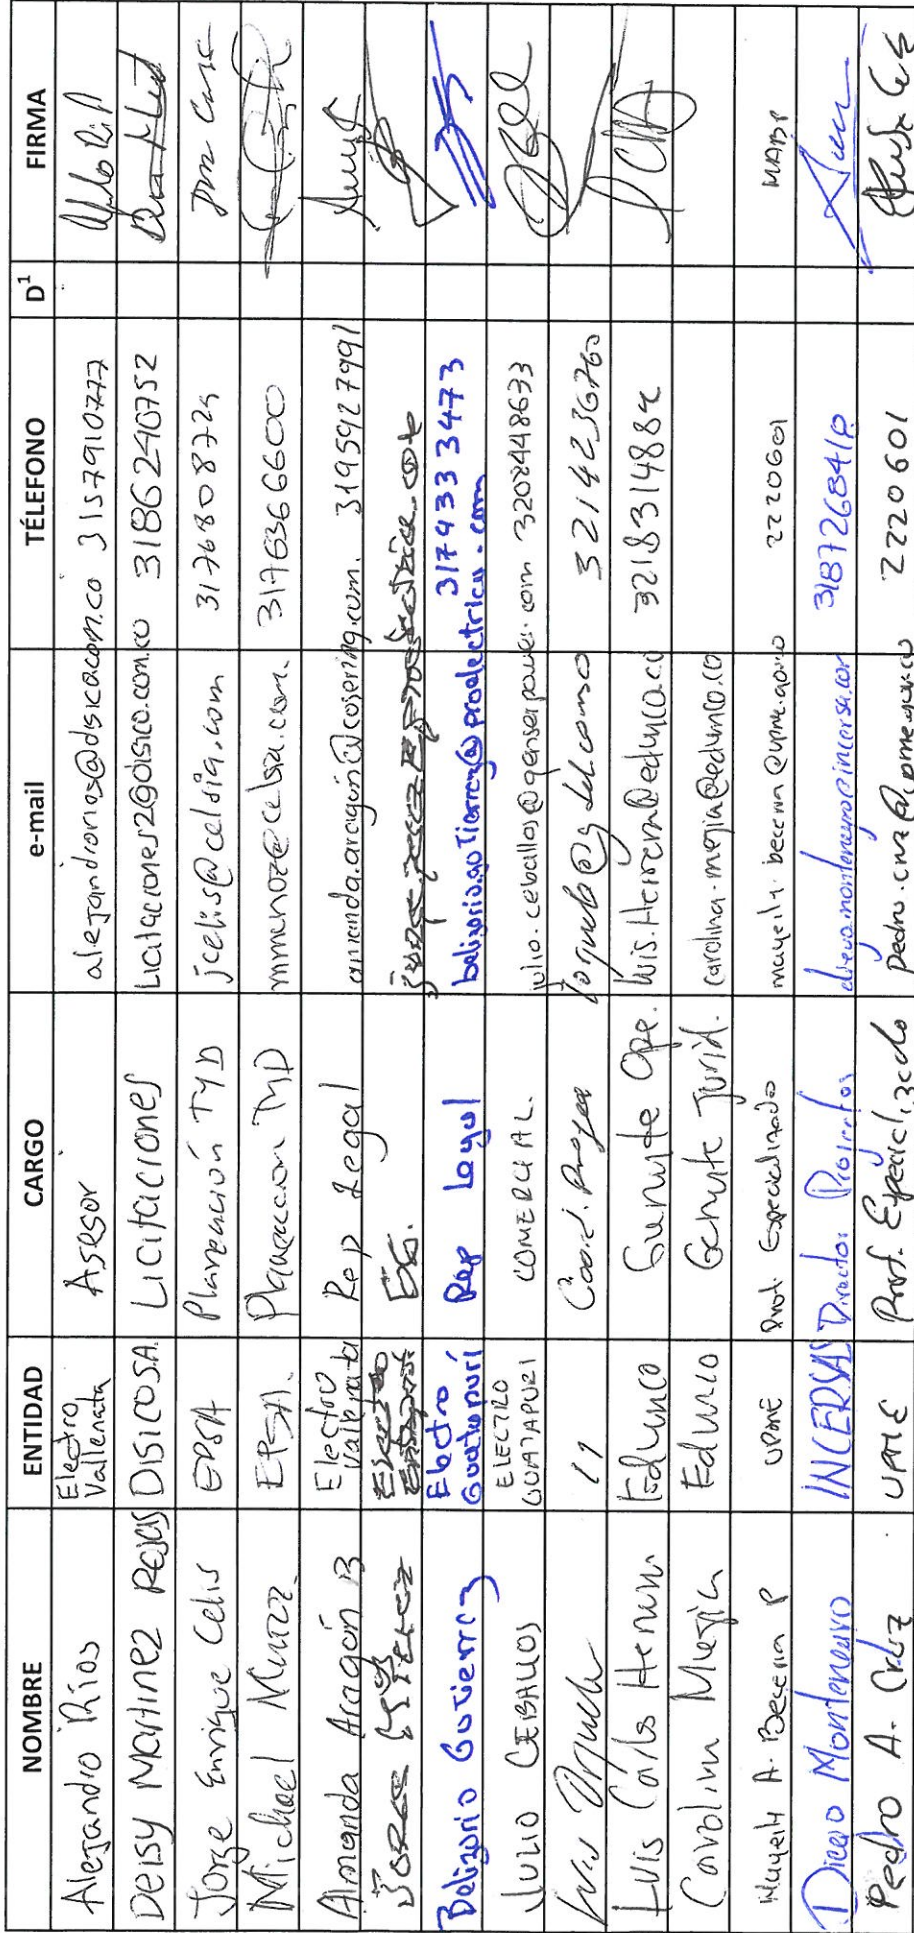 NOMBRE ENTIDAD CARGO e-mail TÉLEFONO D¹ FIRMA
Alejandro Ríos Electro Vallenata Asesor alejandrorios@dsicacom.co 3157910777
Deisy Martinez Rojas DISICO SA Licitaciones Licitaciones2@disico.com.co 3186240752
Jorge Enrique Celis EPSA Planeación TyD jcelis@celsia.com 3176808725
Michael Munoz EPSA. Planeacion TyD mmunoz@celsia.com. 3176366600
Amanda Aragón B Electro Vallenata Rep Legal amanda.aragon@cosering.com. 3195927991
Jorge
Belizario Gutierrez Electro Guatapurí Rep Legal belizario.gutierrez@proelectrica.com 3174333473
JULIO CEBALLOS ELECTRO GUATAPURI COMERCIAL. julio.ceballos@genserpower.com 3208448633
Luis 11 Coord. 3214236760
Luis Carlos Edunco Gerente Ope. luis.herrera@edunco.co 321831488
Carolina Mejia Edunco Gerente Jurid. carolina.mejia@edunco.co
Mayely A. Becerra P UPME Prof. Especializado mayely.becerra@upme.gov.co 2220601 MABP
Diego Montenegro INCERSAS Director Proyectos diego.montenegro@incersa.com 3187268418
Pedro A. Cruz UPME Prof. Especializado Pedro.cruz@upme.gov.co 2220601